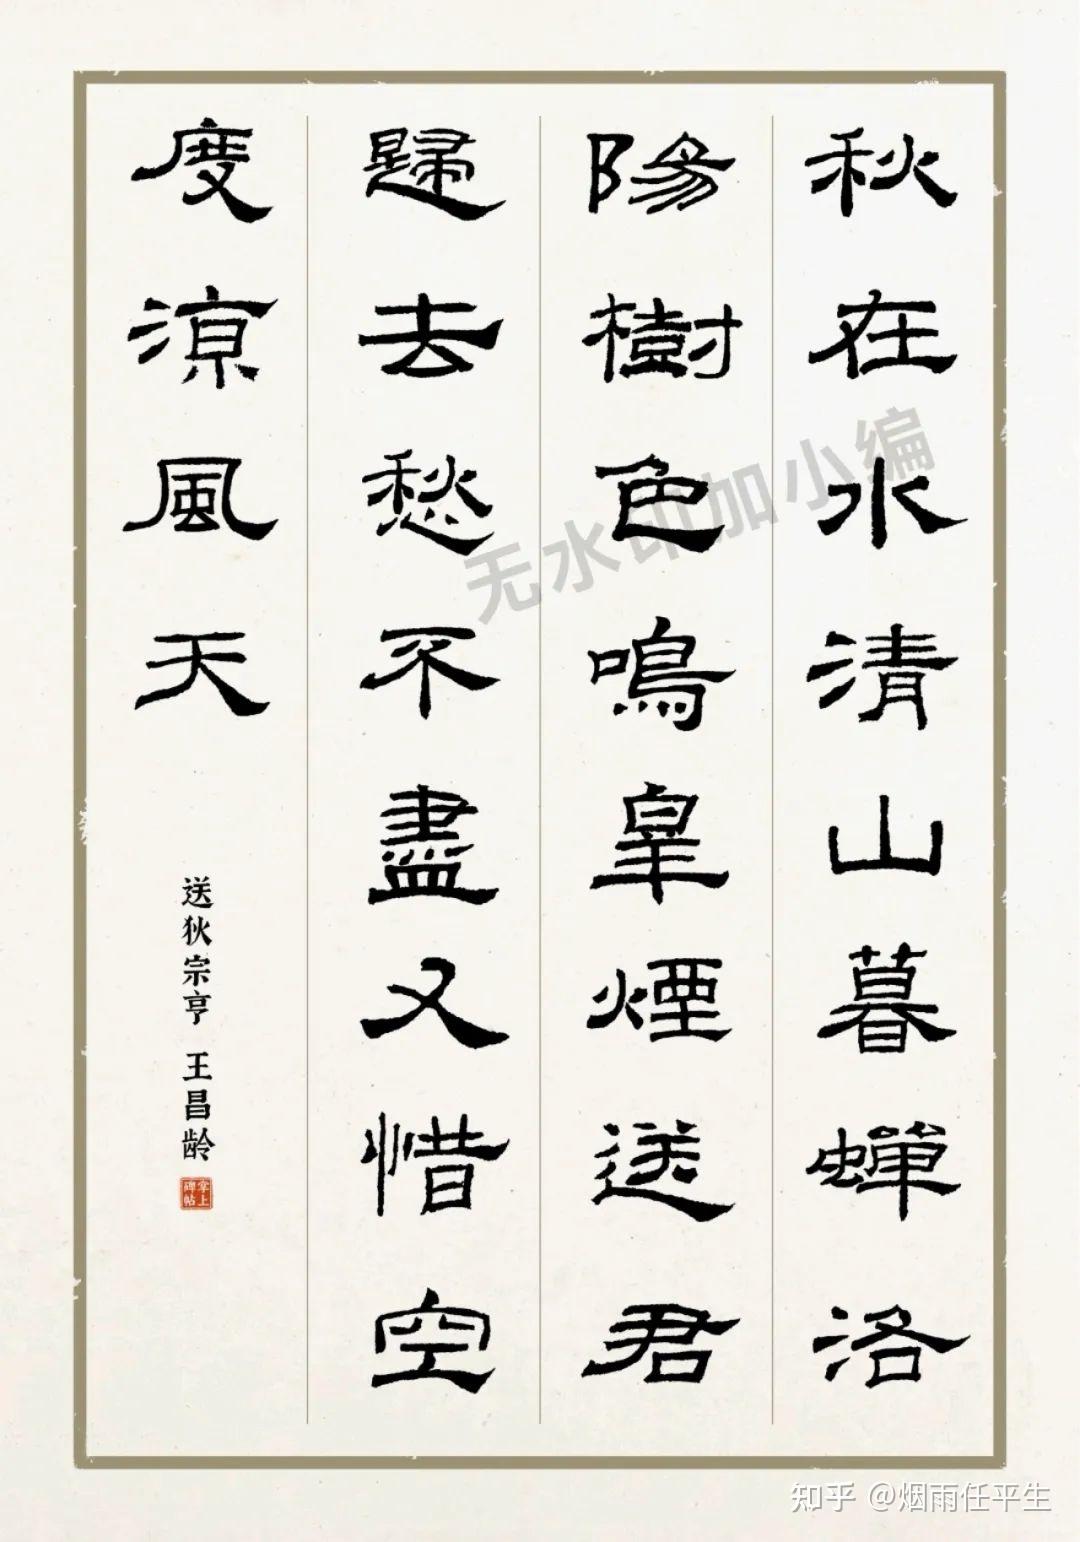 秋在水清山暮蟬洛
陽樹色鳴皋煙送君
歸去愁不盡又惜空
度涼風天
送狄宗亨 王昌龄
掌上
碑帖
无水印加小编
知乎 @烟雨任平生